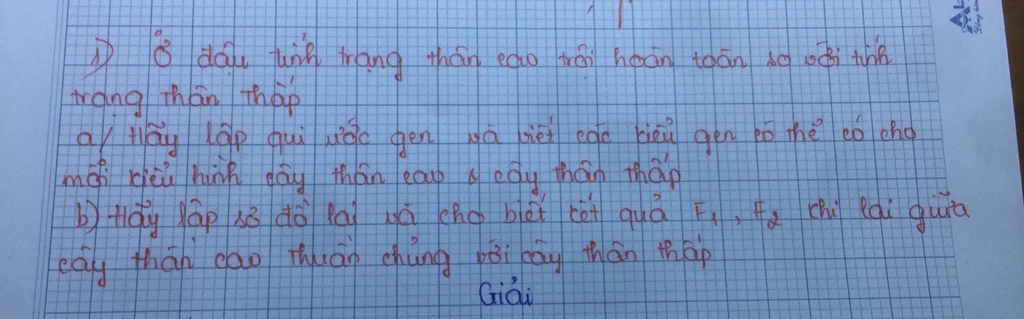 1) Ở đậu tính trạng thân cao trội hoàn toàn so với tính
trạng thân thấp
a/ Hãy lập qui ước gen và viết các kiểu gen có thể có cho
mỗi kiểu hình cây thân cao & cây thân thấp
b) Hãy lập sơ đồ lai và cho biết kết quả F1, F2 khi lai giữa
cây thân cao thuần chủng với cây thân thấp
Giải